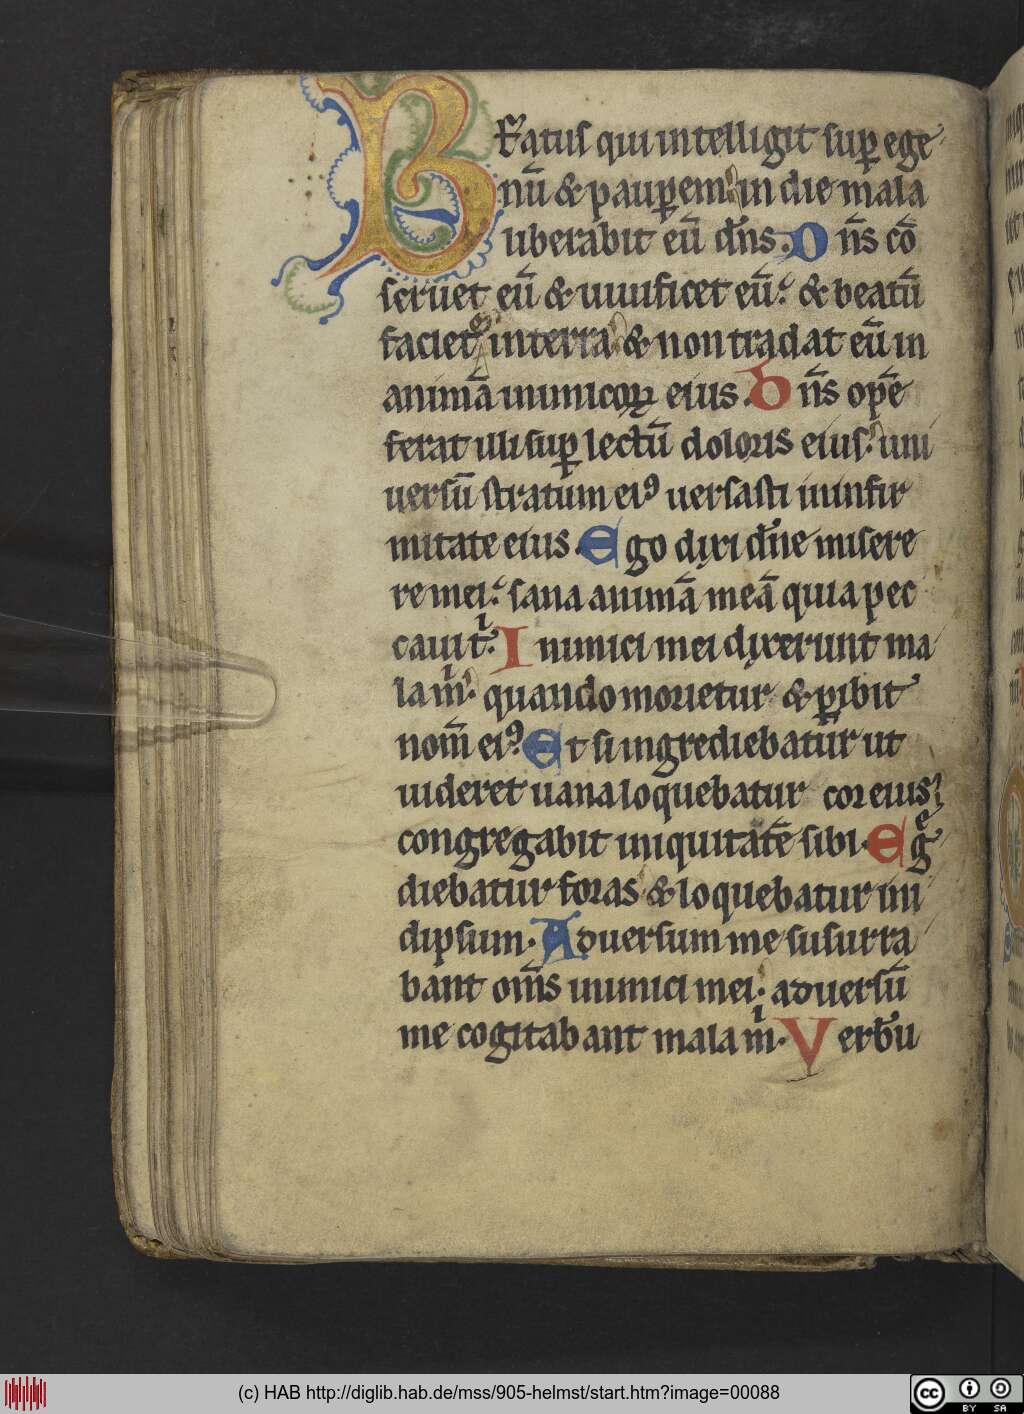 BEatus qui intelligit sup̱ ege
nū & paup̱em. in die mala
liberabit eū dn̄s. Dn̄s cō
seruet eū & uiuificet eū. & beatū
faciet in terra & non tradat eū in
animā inimicoꝝ eius. Dn̄s opē
ferat illi sup̱ lectū doloris eius. uni
uersū stratum eiꝰ uersasti in infir
mitate eius. Ego dixi dn̄e misere
re mei. sana animā meā quia pec
caui t̄. Inimici mei dixerunt ma
la m̄. quando morietur & ꝑibit
nom̄ eiꝰ. Et si ingrediebatur ut
uideret uana loquebatur cor eius
congregabit iniquitatē sibi. Eg̊e
diebatur foras & loquebatur in i
dipsum. Aduersum me susurra
bant om̄s inimici mei. aduersū
me cogitabant mala m̄. Verbū
(c) HAB http://diglib.hab.de/mss/905-helmst/start.htm?image=00088
cc BY SA